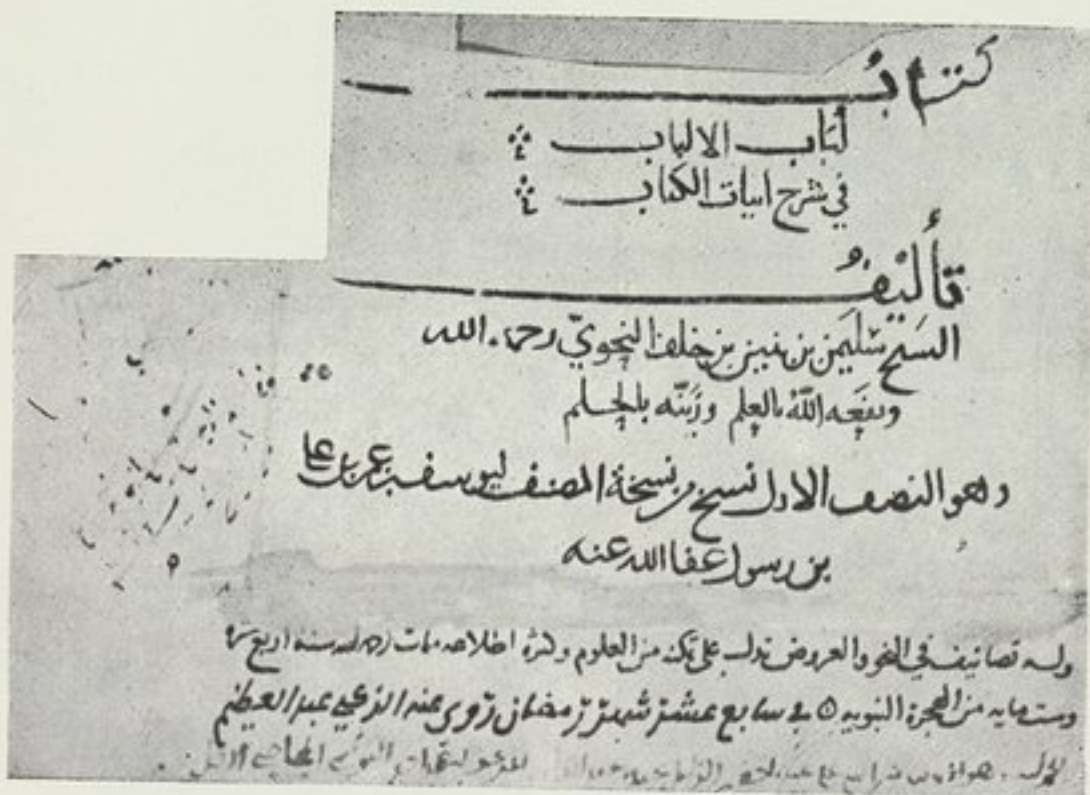 كتابُ
لُبَاب الالباب
في شرح ابيات الكتاب
تأليفُ
الشيخ سُلَيمن بن بنين بن خلف النحويّ رحمه الله
ونفعه اللهُ بالعلم وزَيَّنه بالحلم
وهو النصف الاول نسخ من نسخة المصنف ليوسف بن عمر بن علي
بن رسول عفا الله عنه
وله تصانيف في النحو والعروض تدل على تمكنه من العلوم وكثرة اطلاعه مات رحمه الله سنة اربع
وستمايه من الهجرة النبويه ٥ في سابع عشر شهر رمضان روى عنه الزكي عبد العظيم